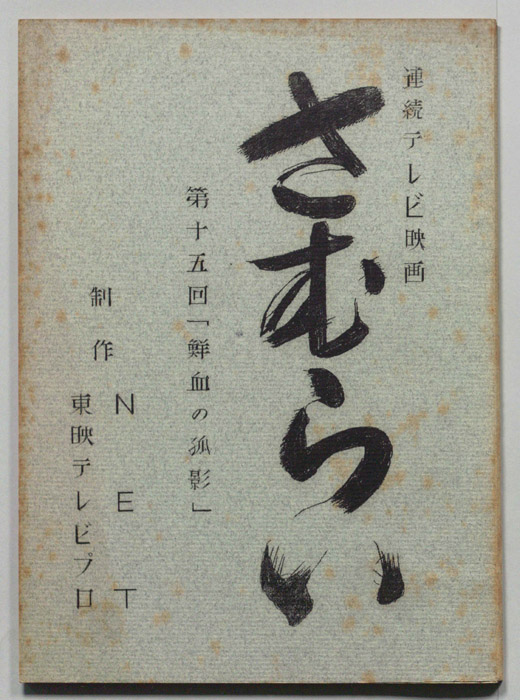 連続テレビ映画
さむらい
第十五回「鮮血の孤影」
制作
NET
東映テレビプロ